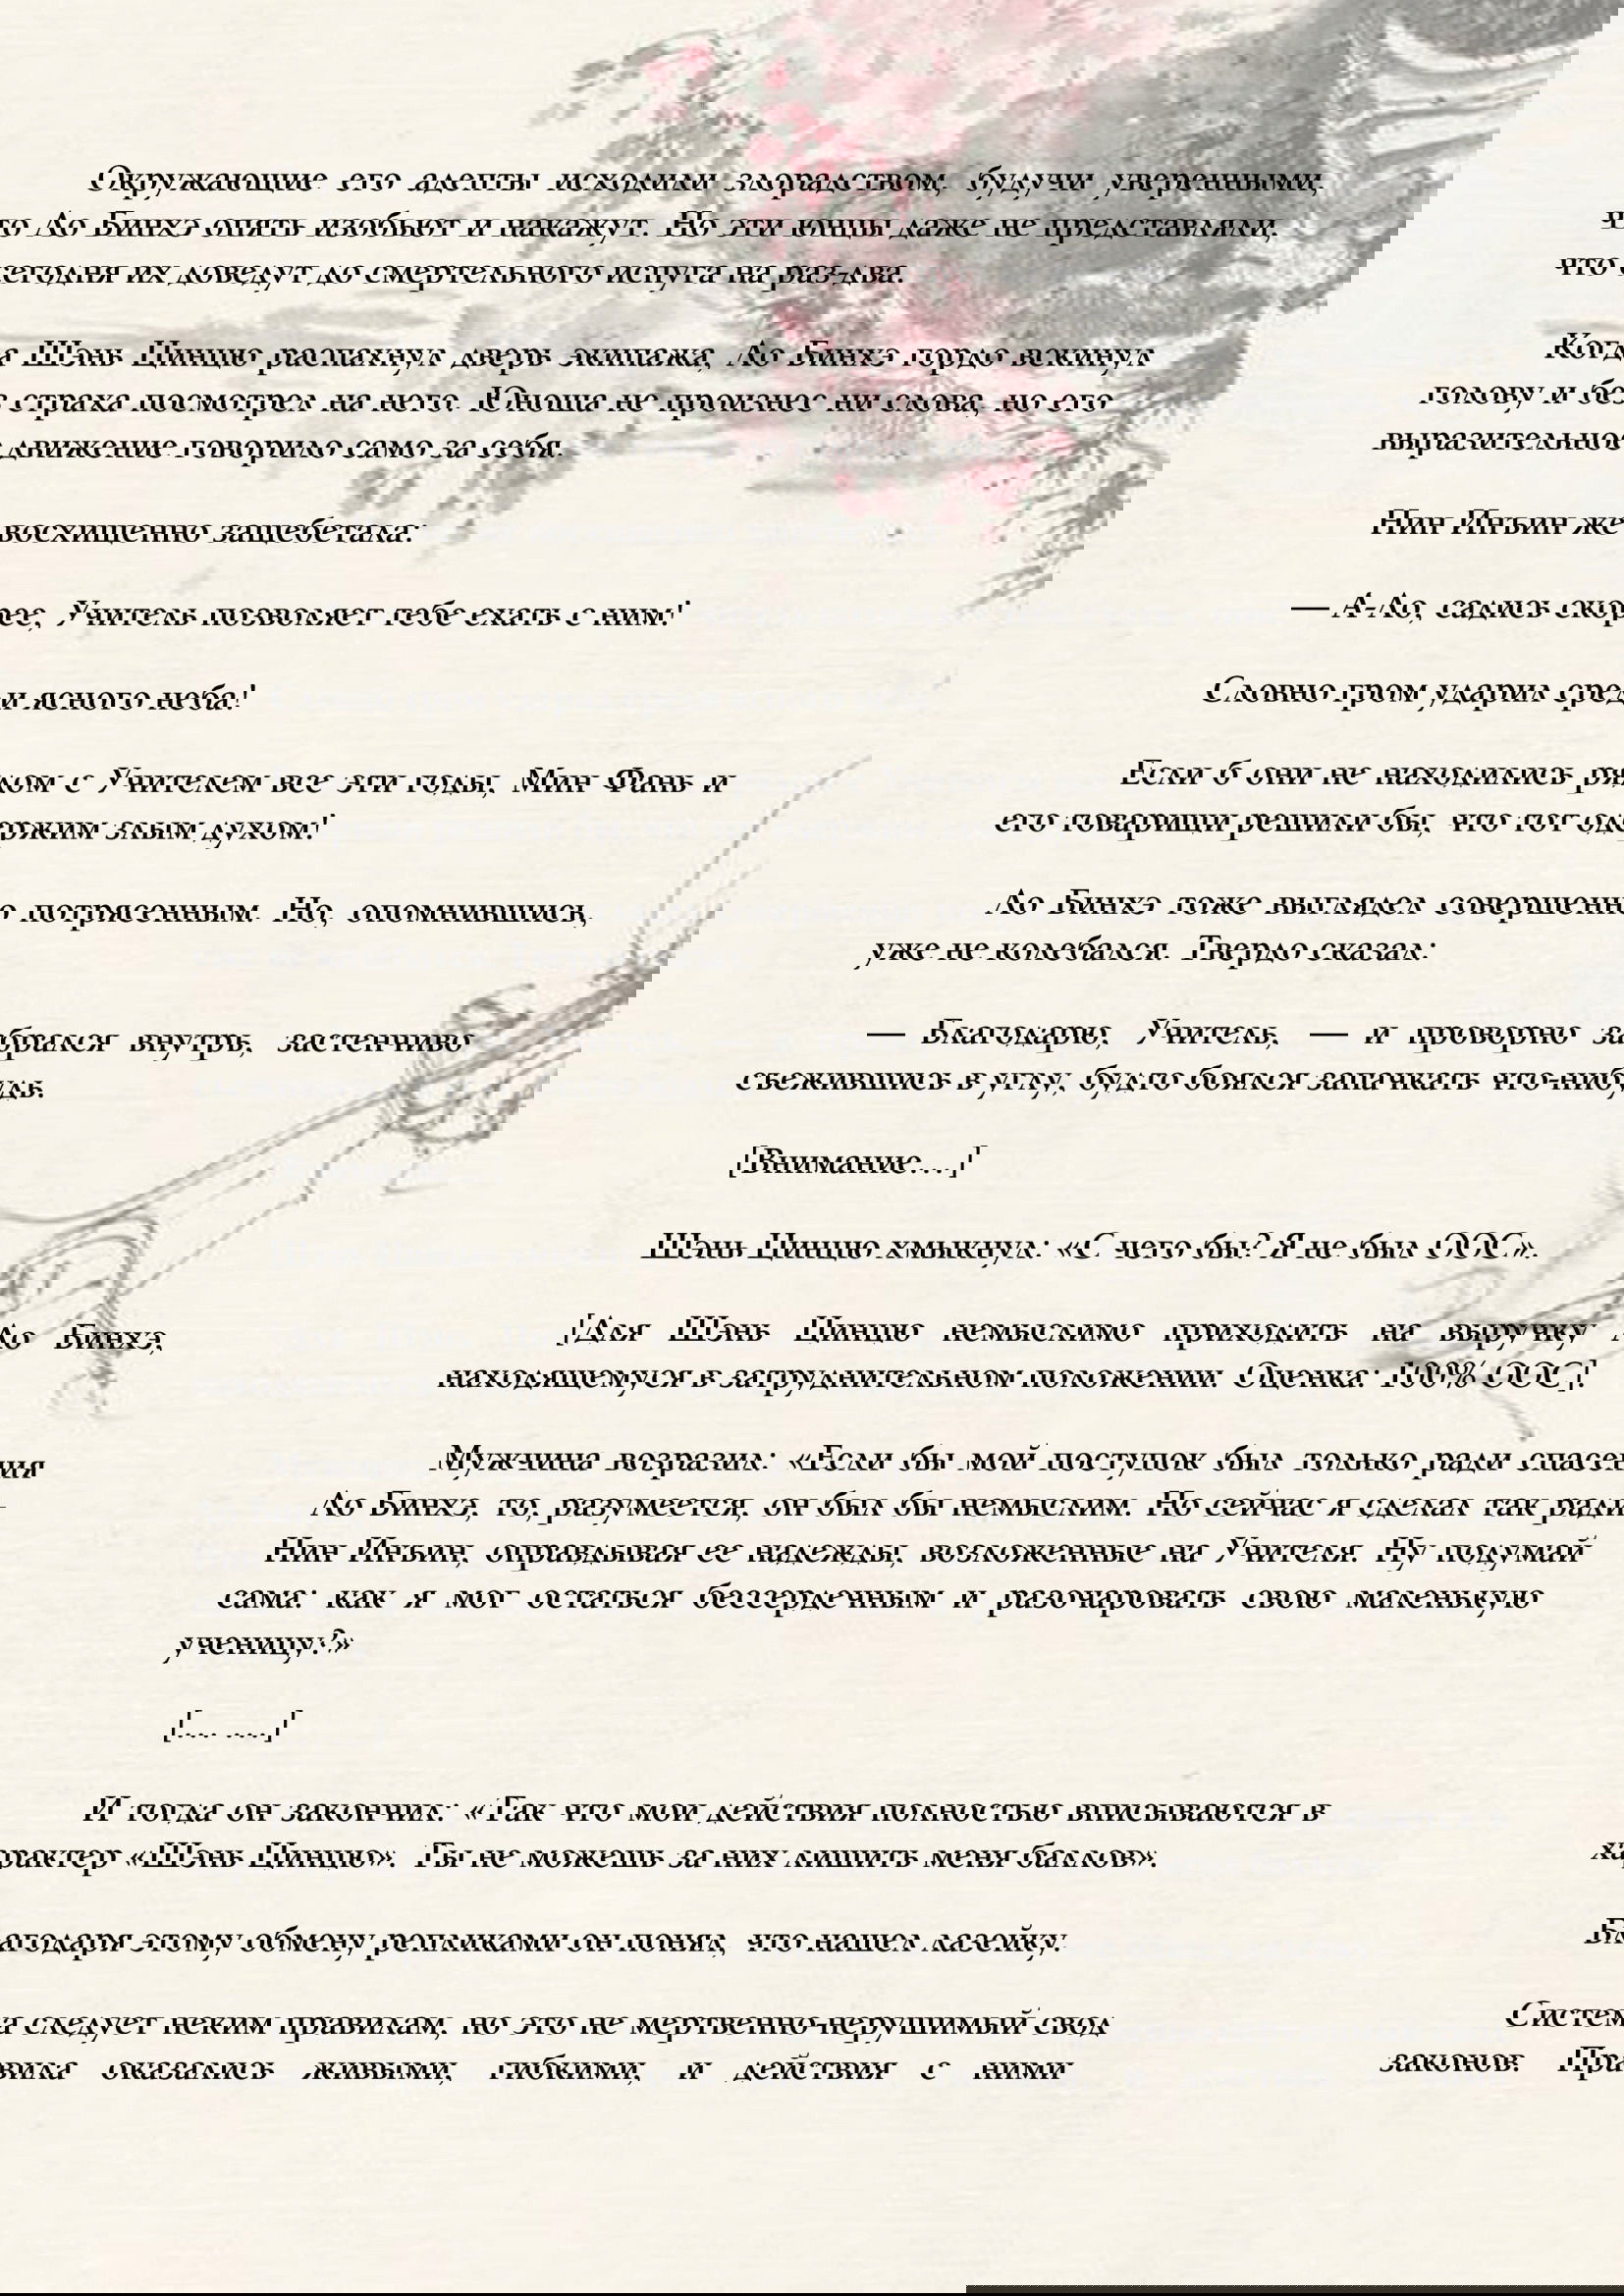 Окружающие его адепты исходили злорадством, будучи уверенными,
что Ло Бинхэ опять изобьют и накажут. Но эти юнцы даже не представляли,
что сегодня их доведут до смертельного испуга на раз-два.
Когда Шэнь Цинцю распахнул дверь экипажа, Ло Бинхэ гордо вскинул
голову и без страха посмотрел на него. Юноша не произнес ни слова, но его
выразительное движение говорило само за себя.
Нин Инъин же восхищенно защебетала:
— А-Ло, садись скорее, Учитель позволяет тебе ехать с ним!
Словно гром ударил среди ясного неба!
Если б они не находились рядом с Учителем все эти годы, Мин Фань и
его товарищи решили бы, что тот одержим злым духом!
Ло Бинхэ тоже выглядел совершенно потрясенным. Но, опомнившись,
уже не колебался. Твердо сказал:
— Благодарю, Учитель, — и проворно забрался внутрь, застенчиво
съежившись в углу, будто боялся запачкать что-нибудь.
[Внимание…]
Шэнь Цинцю хмыкнул: «С чего бы? Я не был ООС».
[Для Шэнь Цинцю немыслимо приходить на выручку Ло Бинхэ,
находящемуся в затруднительном положении. Оценка: 100% ООС]!
Мужчина возразил: «Если бы мой поступок был только ради спасения
Ло Бинхэ, то, разумеется, он был бы немыслим. Но сейчас я сделал так ради
Нин Инъин, оправдывая ее надежды, возложенные на Учителя. Ну подумай
сама: как я мог остаться бессердечным и разочаровать свою маленькую
ученицу?»
[.... .....]
И тогда он закончил: «Так что мои действия полностью вписываются в
характер «Шэнь Цинцю». Ты не можешь за них лишить меня баллов».
Благодаря этому обмену репликами он понял, что нашел лазейку.
Система следует неким правилам, но это не мертвенно-нерушимый свод
законов. Правила оказались живыми, гибкими, и действия с ними